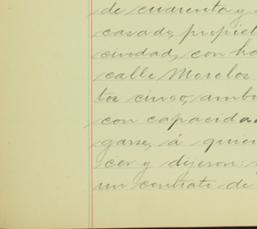 de cuarenta y
casado, propiet
ciudad, con ha
calle Morelos
tos cinco, ambo
con capacidad
garse, á quien
cer y dijeron:
un contrato de